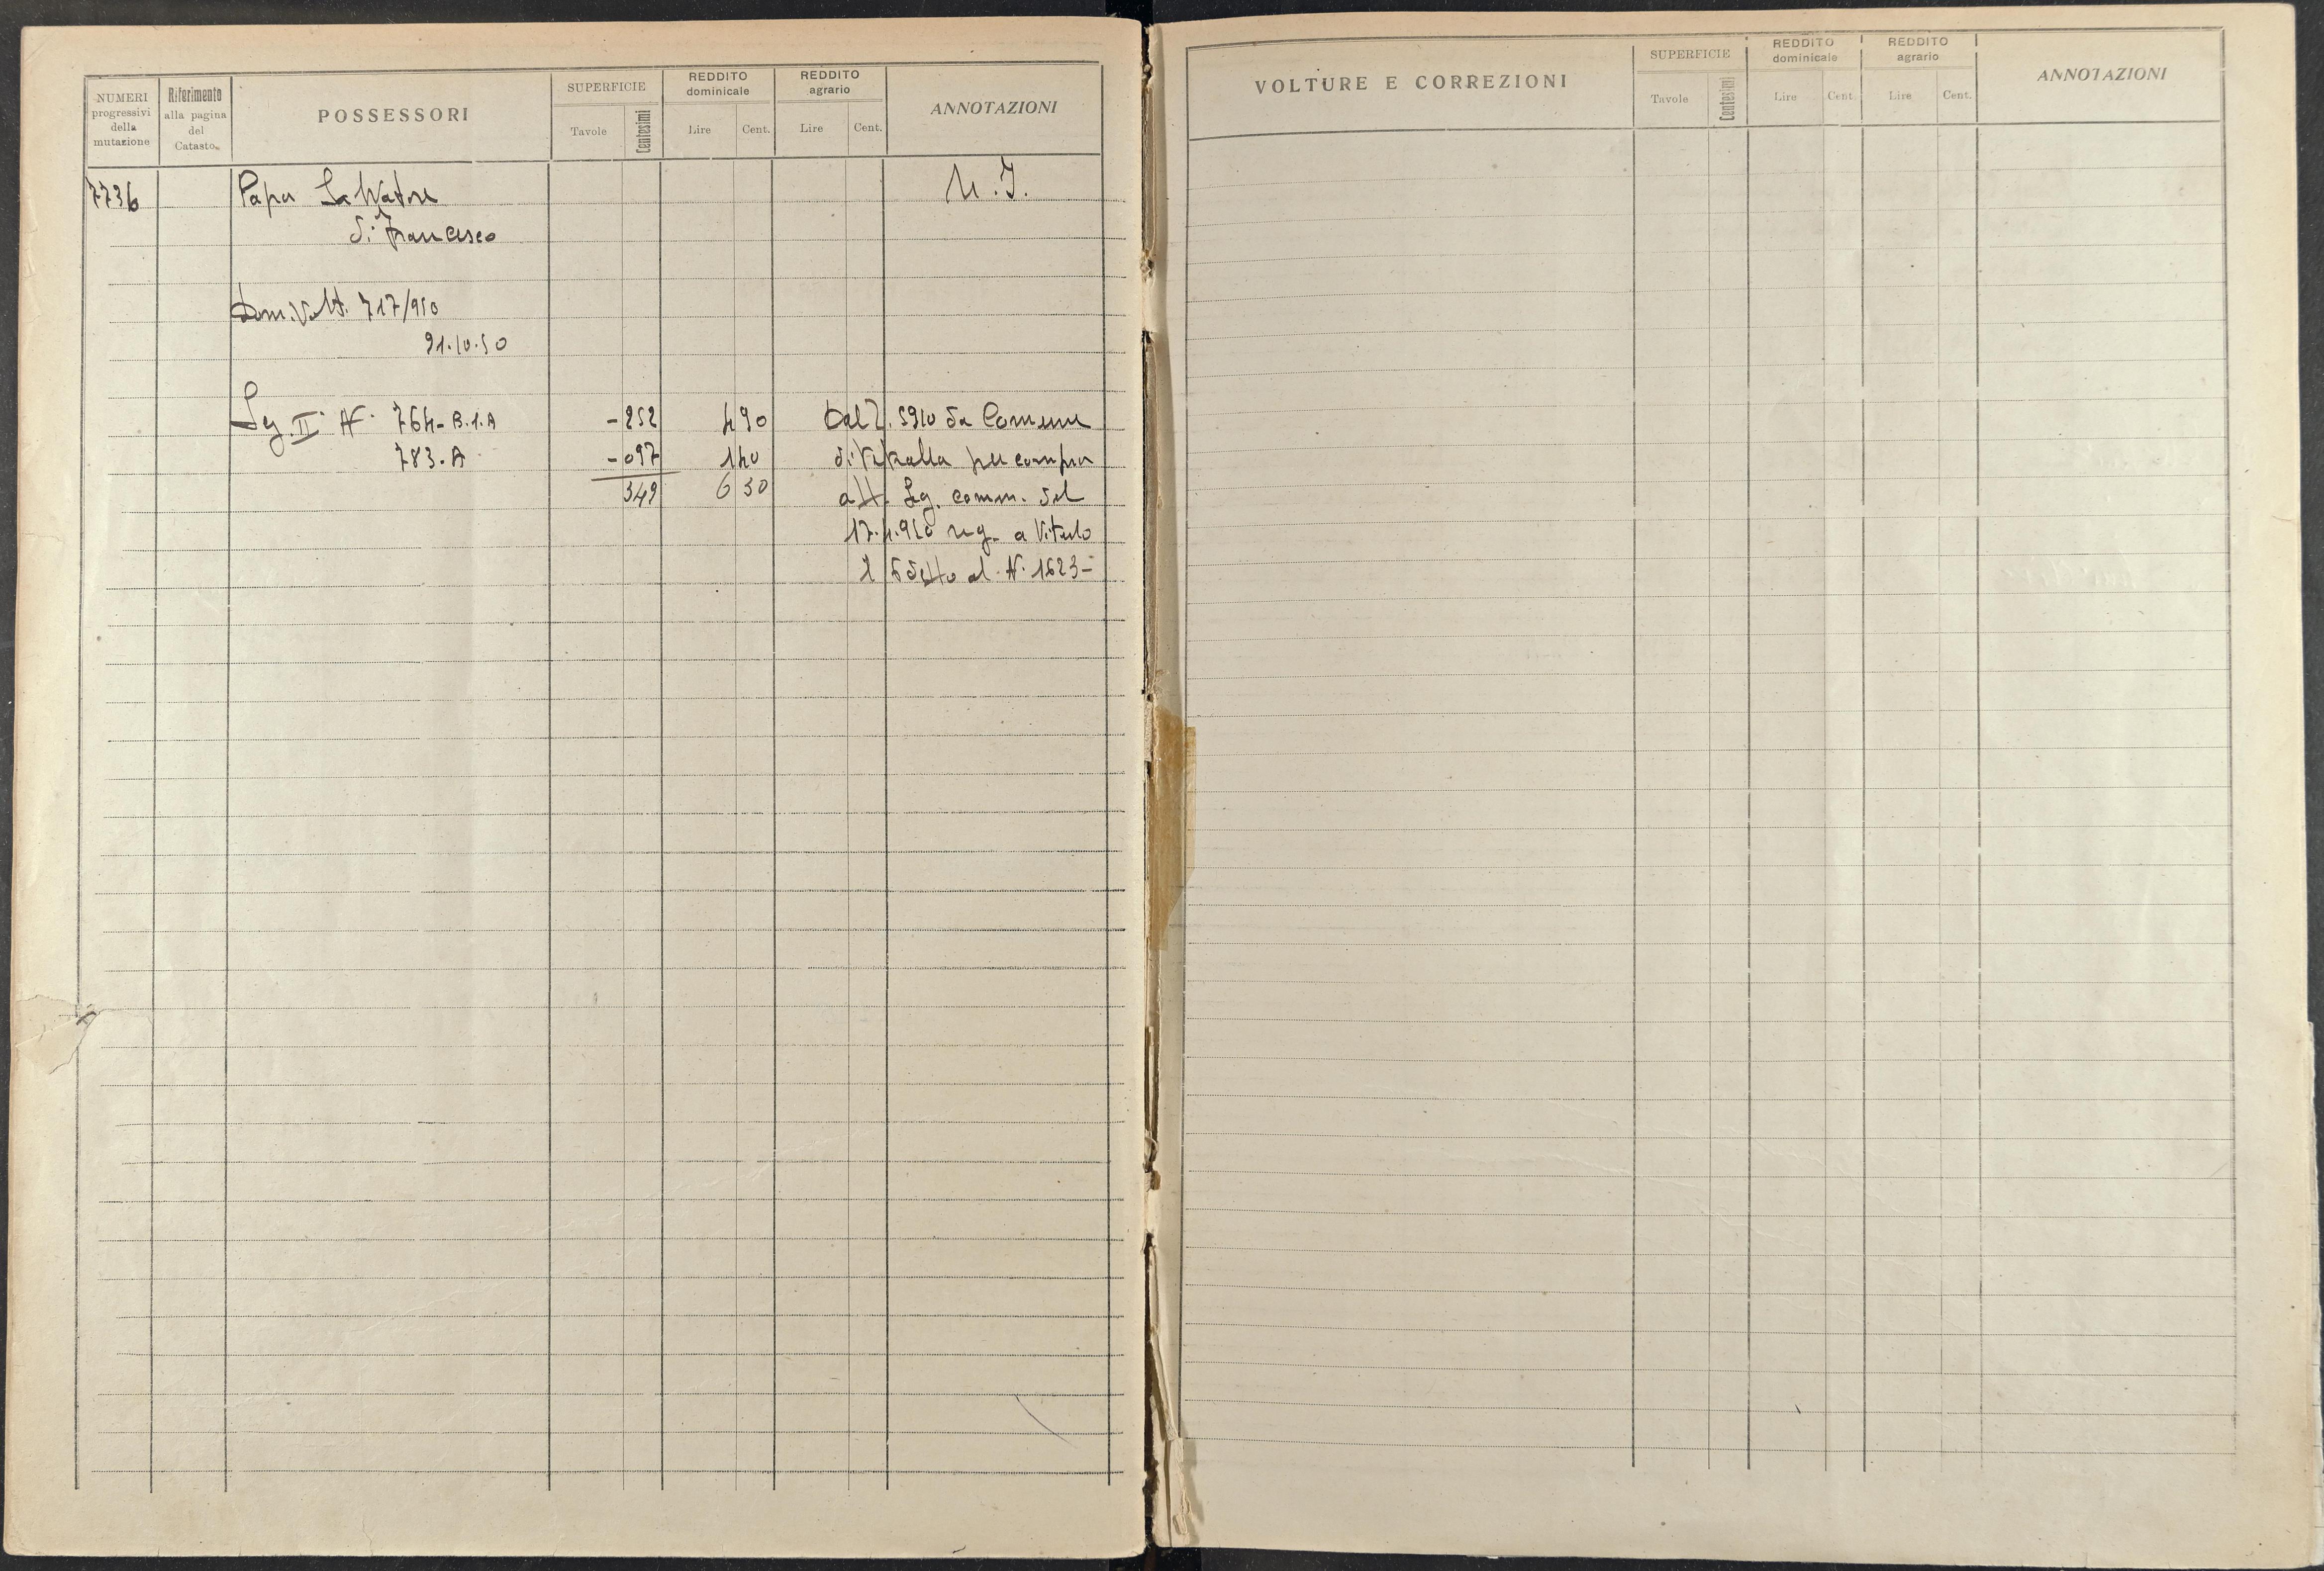 NUMERI progressivi della mutazione
Riferimento alla pagina del Catasto
POSSESSORI
SUPERFICIE
Tavole Centesimi
REDDITO dominicale
Lire Cent.
REDDITO agrario
Lire Cent.
ANNOTAZIONI
7736 Papa Salvatore U.I.
di Francesco
Dom. Volt. 717/950
21.10.50
Sez II N. 764-B.1.A -252 4 90 Dall. 5910 da Comune
783-A -097 1 40 di per compra
349 6 30 att. Seg. comm. del
17.4.950 reg. a Vitulo
detto al N. 1623-
VOLTURE E CORREZIONI
SUPERFICIE
Tavole Centesimi
REDDITO dominicale
Lire Cent
REDDITO agrario
Lire Cent.
ANNOTAZIONI